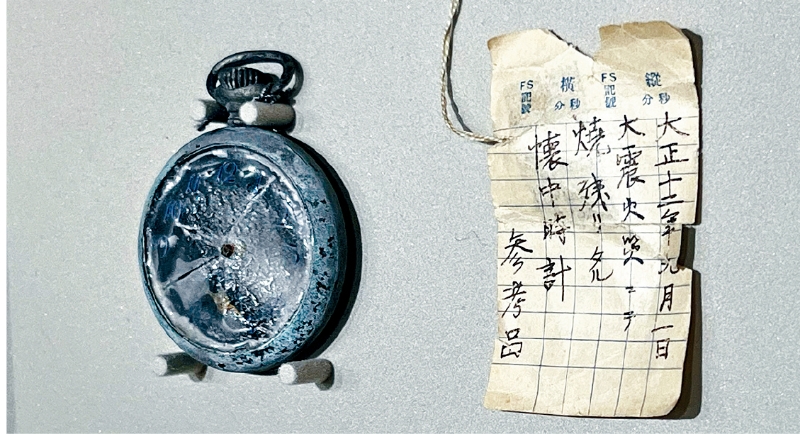 縱
分秒
FS記號
橫
分秒
FS記號
大正十二年九月一日
大震火災ニテ
燒残リタル
懐中時計
参考品